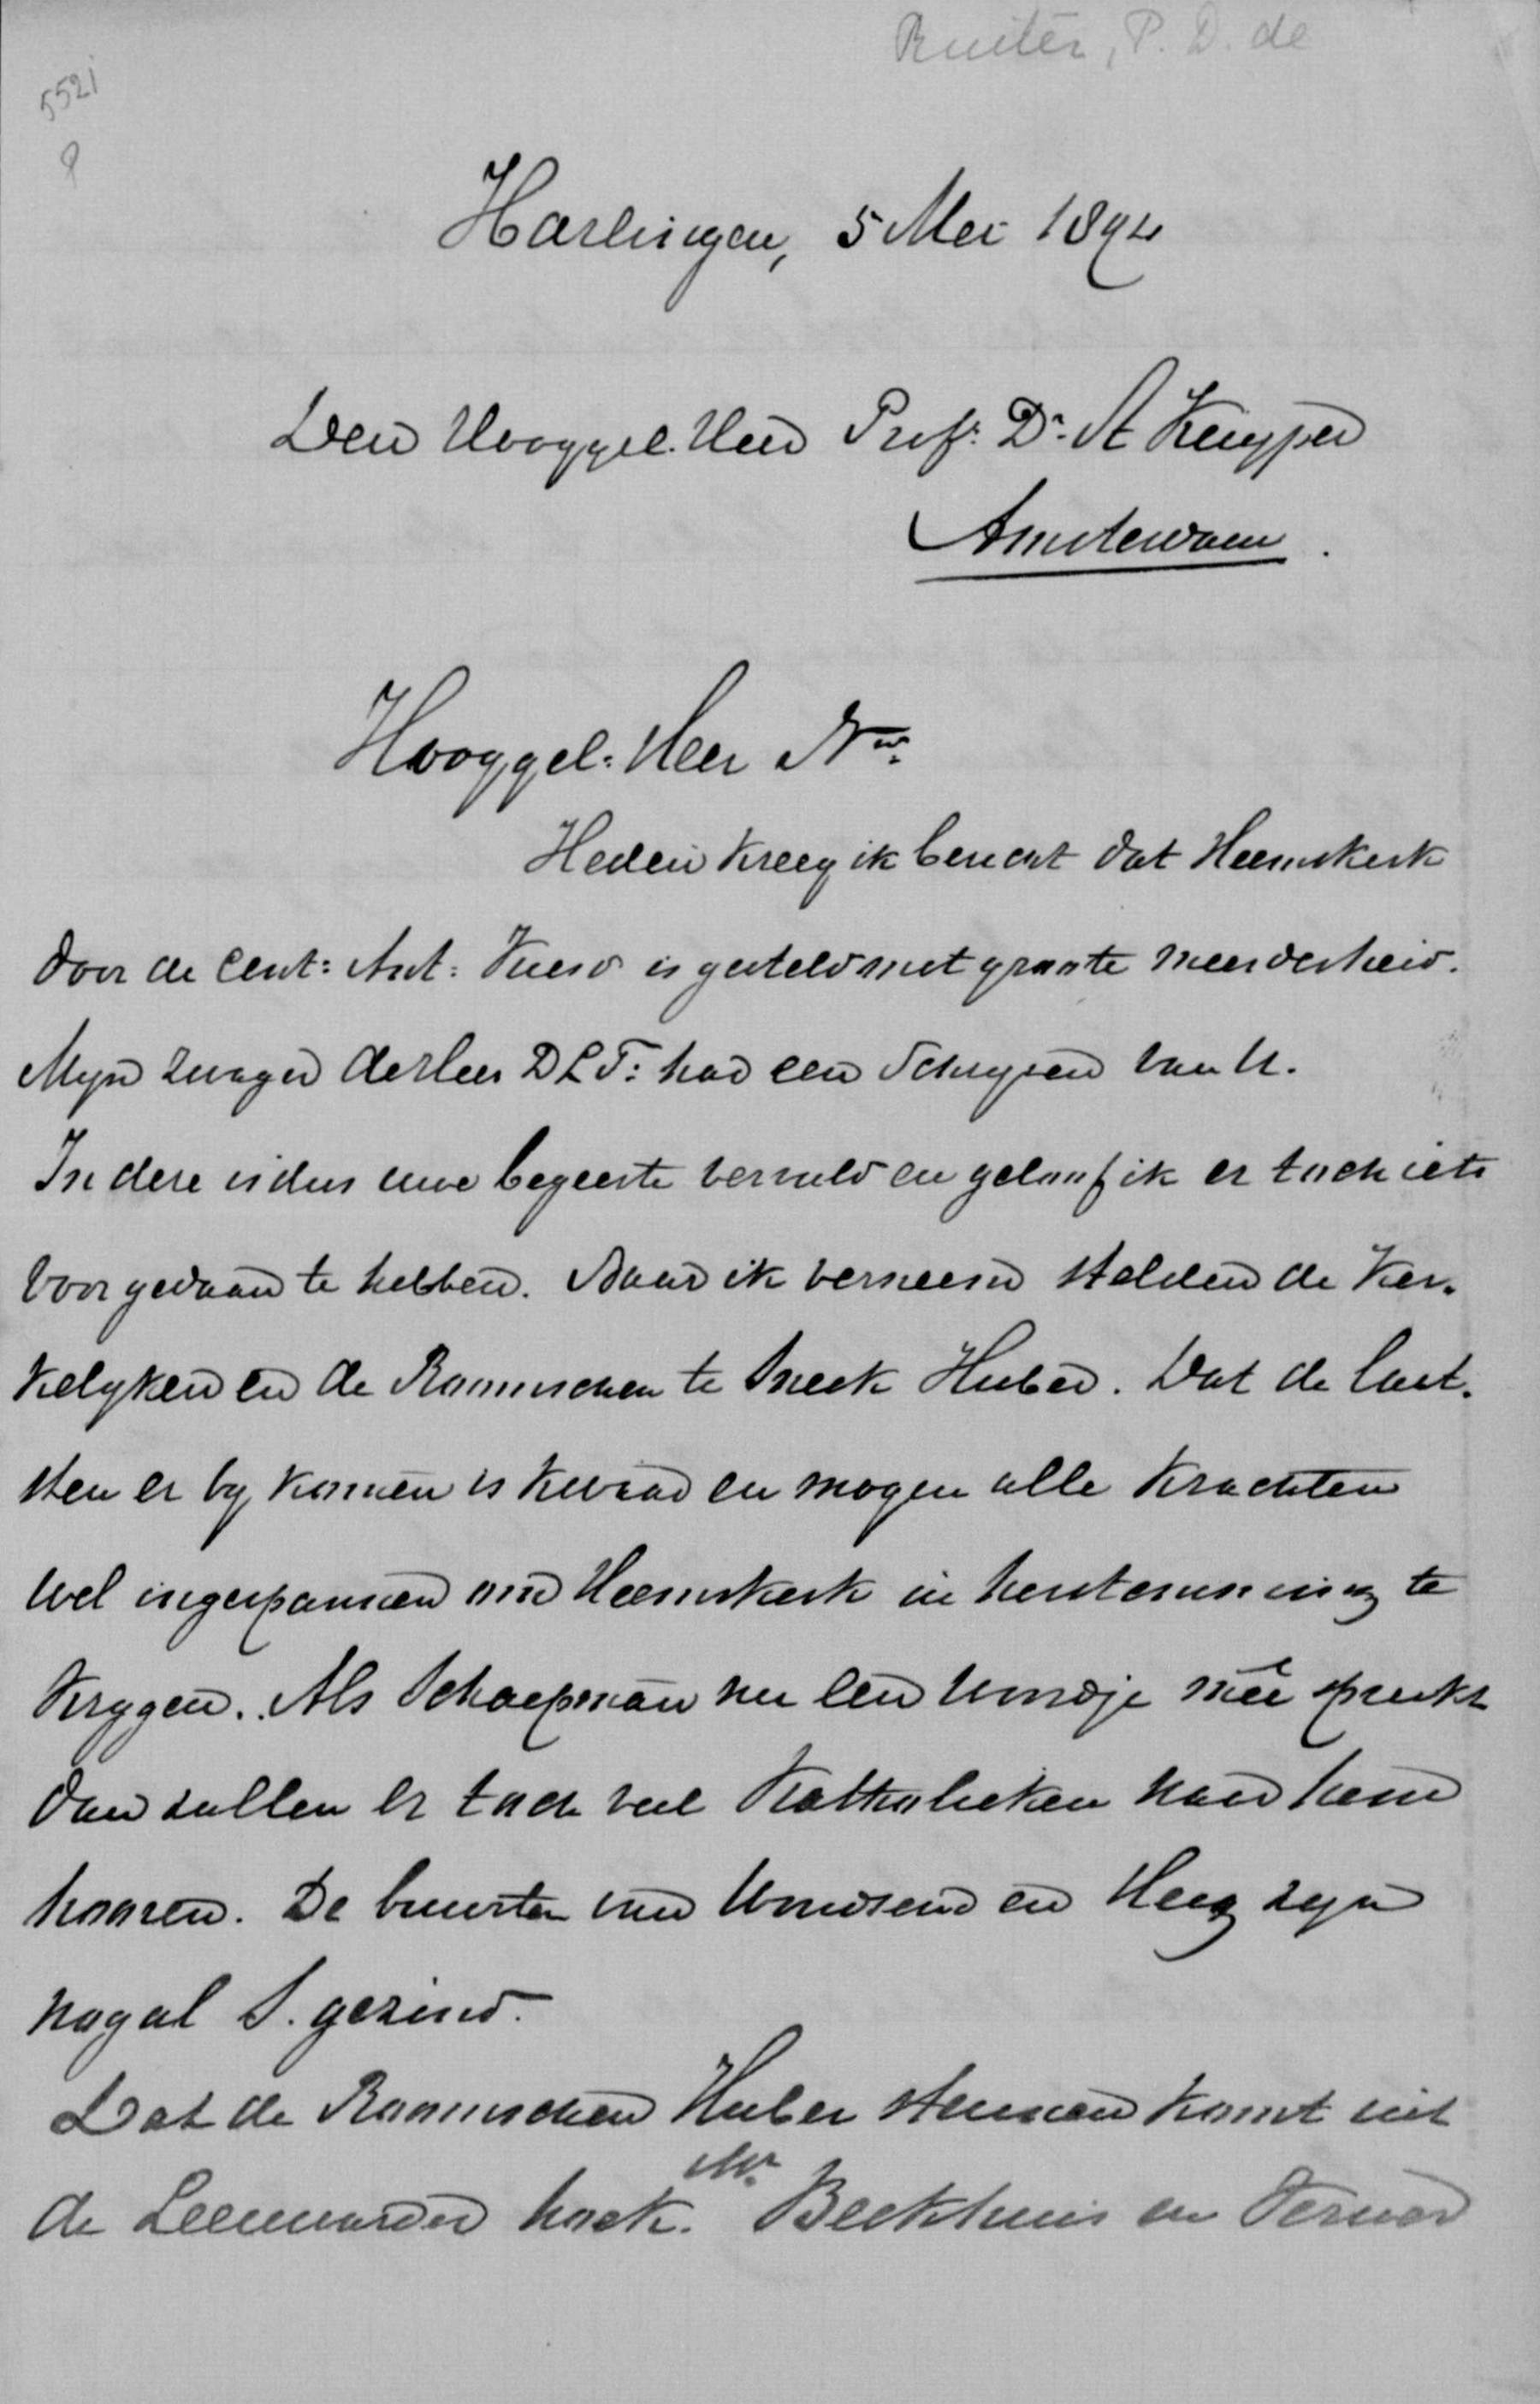 Ruiter, P. D. de
5521
Harlingen, 5 Mei 1894
Den Hooggel. Heer Prof. Dr. A Kuyper
Amsterdam.
Hooggel. Heer
Heden kreeg ik bericht dat Heemskerk
door de Cent: Ant: Kiesv is gesteld met groote meerderheid.
Myn zwager der Lees D L F: had een schryven van U.
In deze is dus uwe begeerte vervuld en geloof ik er toch iets
voor gedaan te hebben. Naar ik verneem stelden de Ker-
kelyken en de Roomschen te Sneek Huber. Dat de laat-
sten er by komen is kwaad en mogen alle krachten
wel ingespannen om Heemskerk in herstemming te
krygen. Als Schaepman nu een woordje méé spreekt
dan zullen er toch veel Katholieken naar hem
hooren. De buurten van Woudsend en Heeg zyn
nogal S. gezind.
Dat de Roomschen Huber steunen komt uit
de Leeuwarder hoek. Mr. Beekhuis en